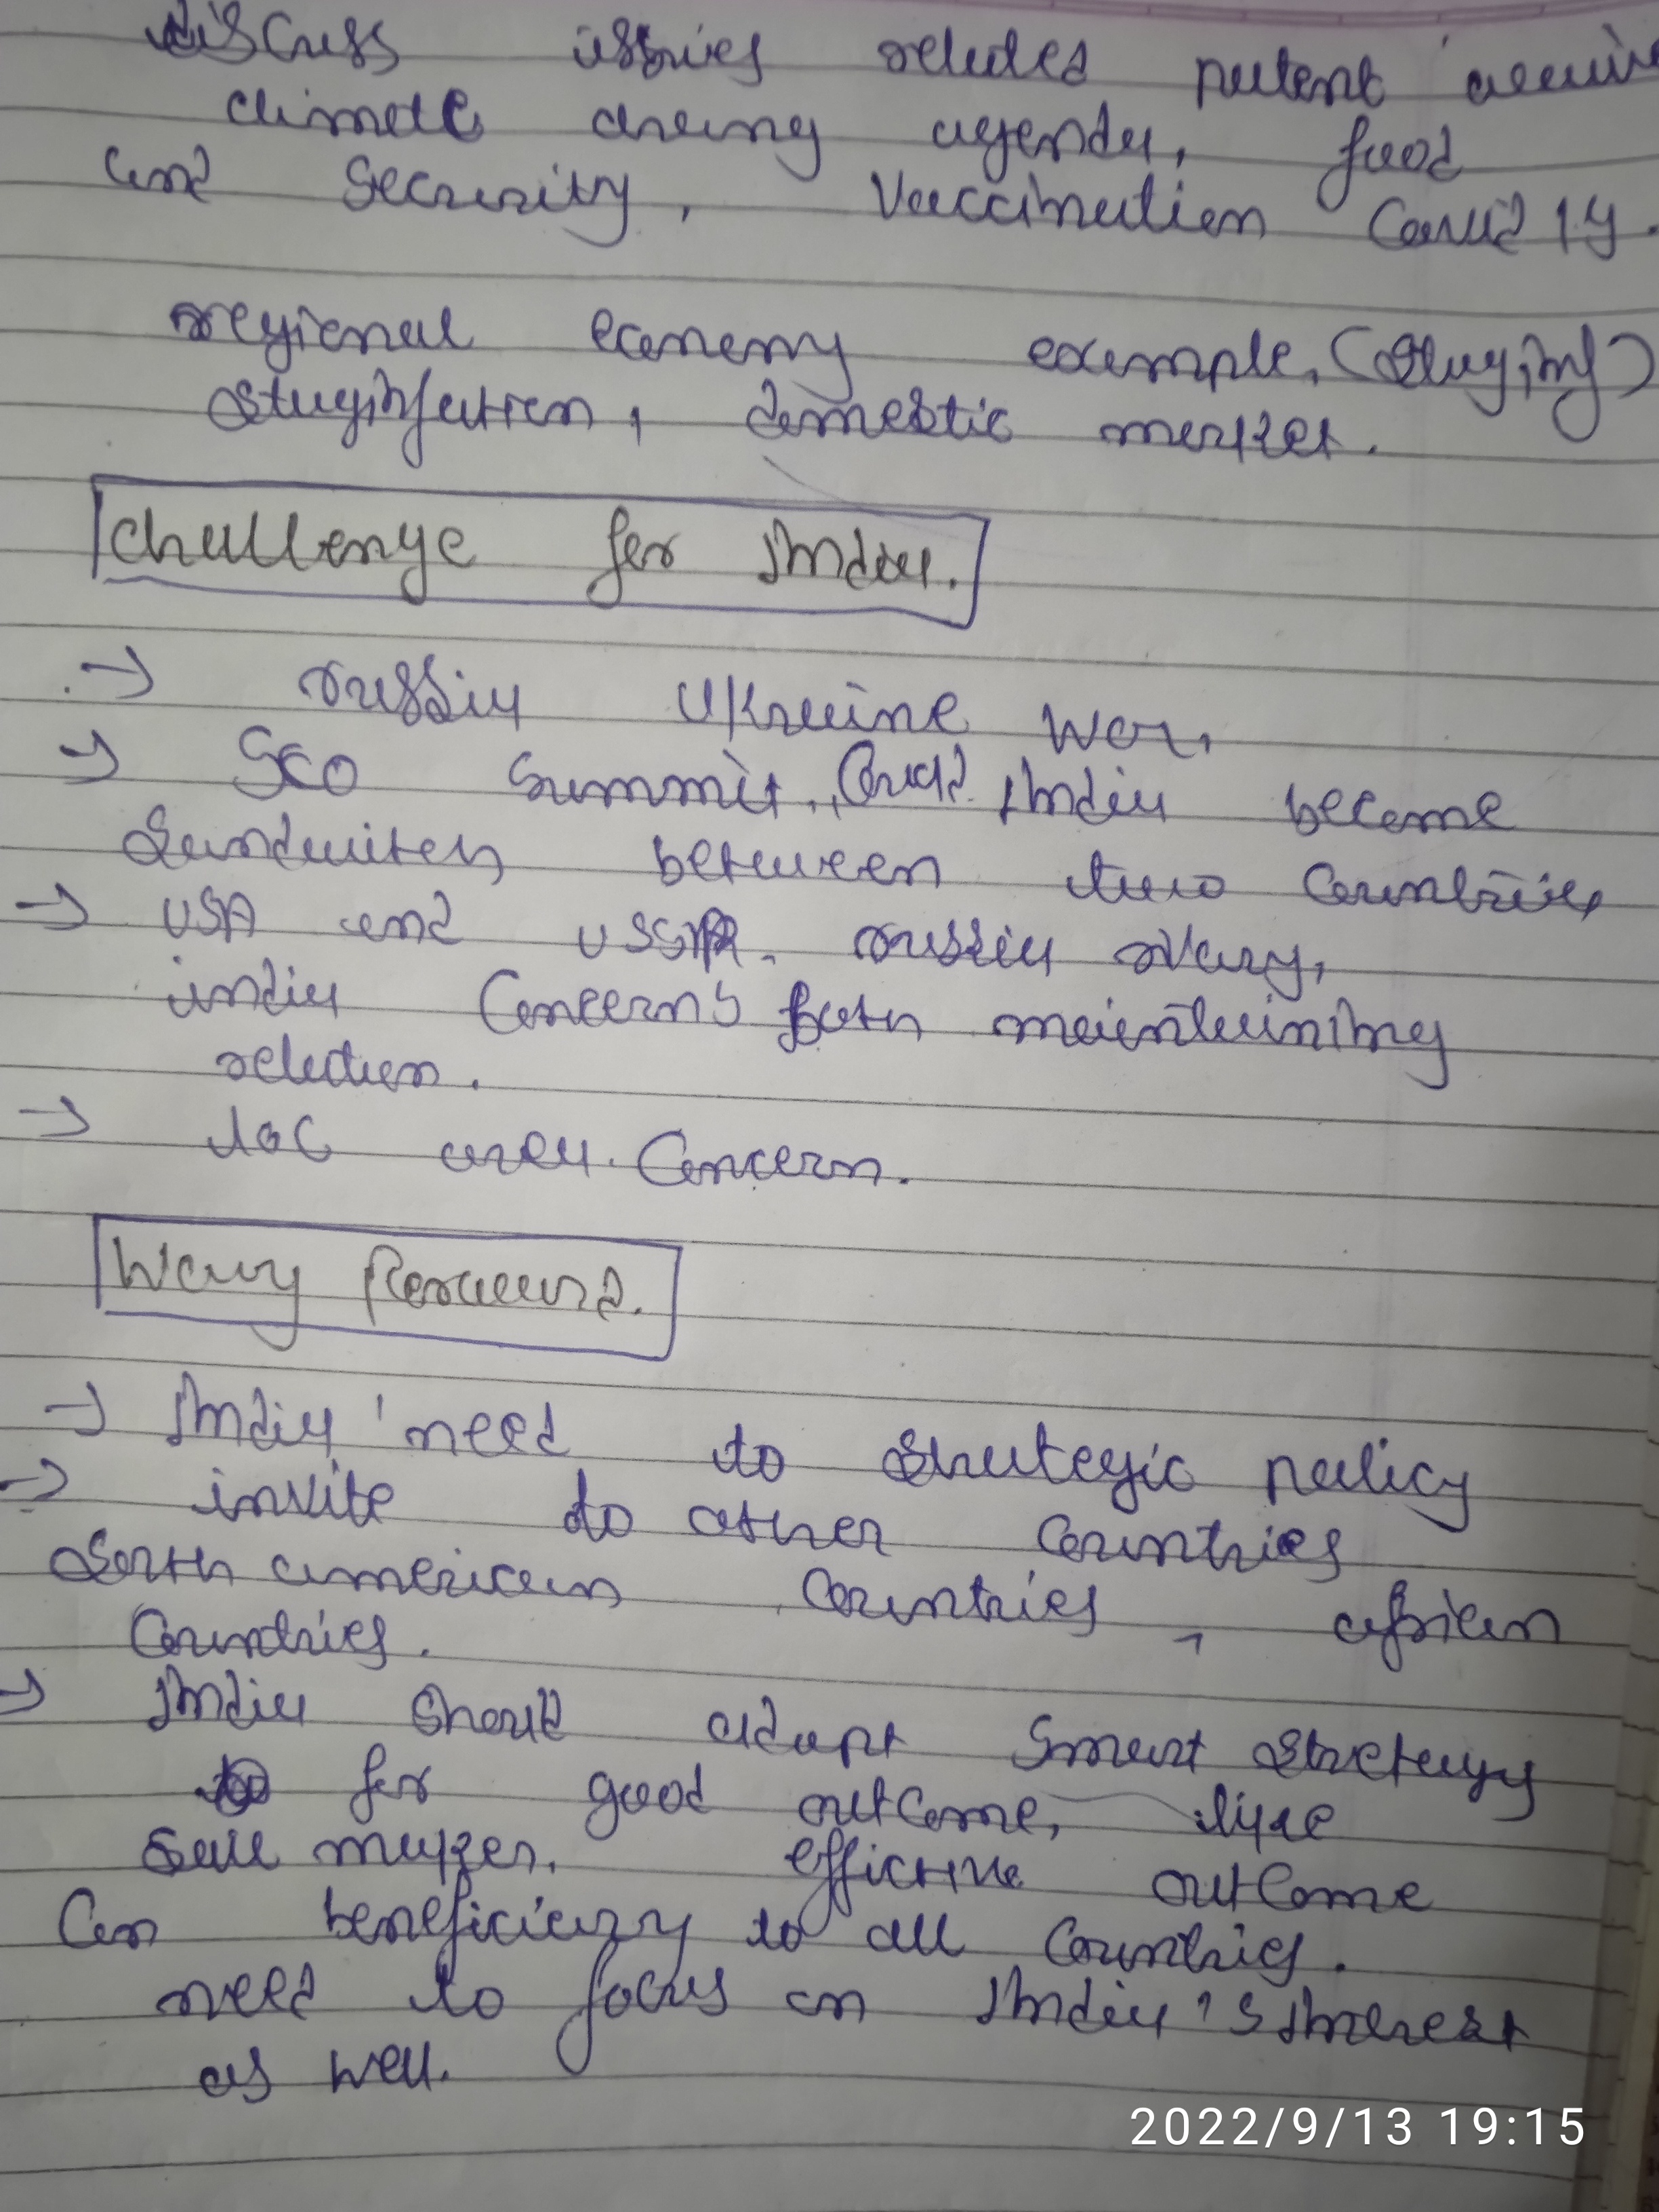 discuss issues related patent
climate agenda, food
and security, Vaccination Covid 19.
regional economy example, (Staginf)
staginfation, domestic market.
Challenge for India.
→ russia Ukraine war,
→ SCO Summit, Quad India become
Sandwitch between two Countries
→ USA and USSR. russia
india Concern's both maientaining
relation.
→ area Concern.
Way forward.
→ India need to Strategic policy
→ invite to other Countries
South american Countries, african
Countries.
→ India Should adapt Smart Strategy
for good outcome, like
effictive outcome
Can beneficiary to all Countries.
need to focus on India's Interest
as well.
2022/9/13 19:15